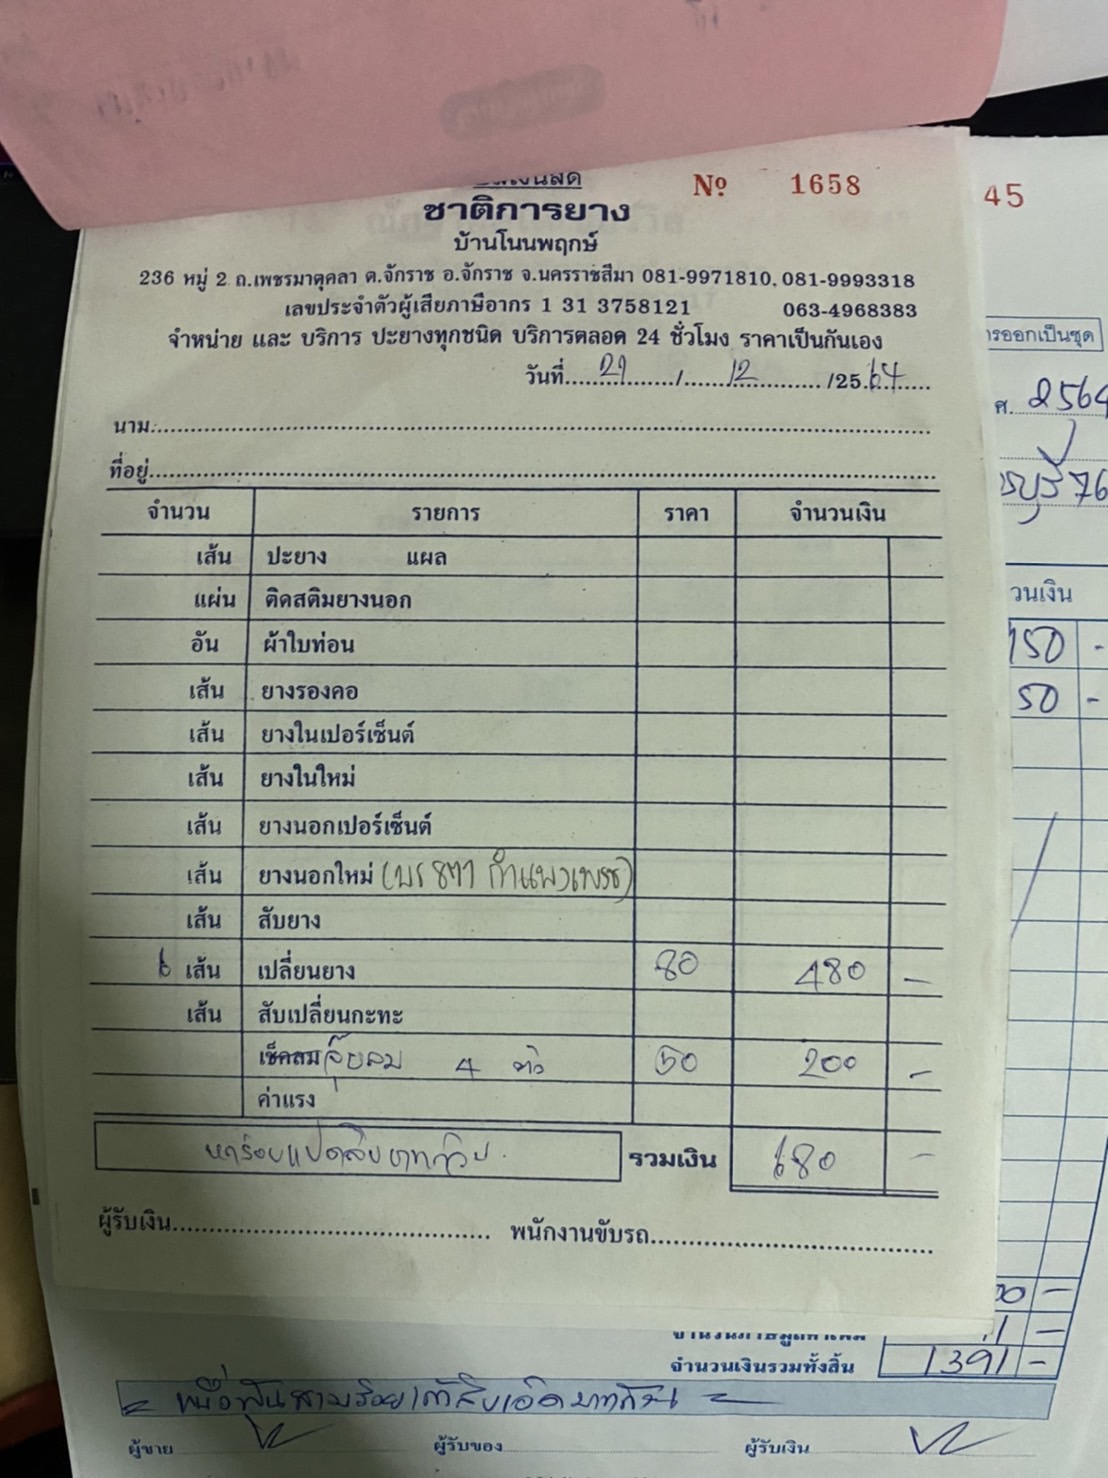 บิลเงินสด
№ 1658
45
ชาติการยาง
บ้านโนนพฤกษ์
236 หมู่ 2 ถ.เพชรมาตุคลา ต.จักราช อ.จักราช จ.นครราชสีมา 081-9971810, 081-9993318
เลขประจำตัวผู้เสียภาษีอากร 1 31 3758121 063-4968383
จำหน่าย และ บริการ ปะยางทุกชนิด บริการตลอด 24 ชั่วโมง ราคาเป็นกันเอง
วันที่ 29 / 12 /25 64
นาม
ที่อยู่
จำนวน รายการ ราคา จำนวนเงิน
เส้น ปะยาง แผล
แผ่น ติดสติมยางนอก
อัน ผ้าใบท่อน
เส้น ยางรองคอ
เส้น ยางในเปอร์เซ็นต์
เส้น ยางในใหม่
เส้น ยางนอกเปอร์เซ็นต์
เส้น ยางนอกใหม่ กำแพงเพชร)
เส้น สับยาง
6 เส้น เปลี่ยนยาง 80 480 -
เส้น สับเปลี่ยนกะทะ
เช็คลม จุ๊บลม 4 ตัว 50 200 -
ค่าแรง
หกร้อยแปดสิบบาทถ้วน รวมเงิน 680 -
ผู้รับเงิน พนักงานขับรถ
ารออกเป็นชุด
ศ. 2564
รบุรี 76
วนเงิน
150 -
50 -
00 -
1 -
จำนวนเงินรวมทั้งสิ้น 1391 -
= หนึ่งพันสามร้อยเก้าสิบเอ็ดบาทถ้วน =
ผู้ขาย ผู้รับของ ผู้รับเงิน